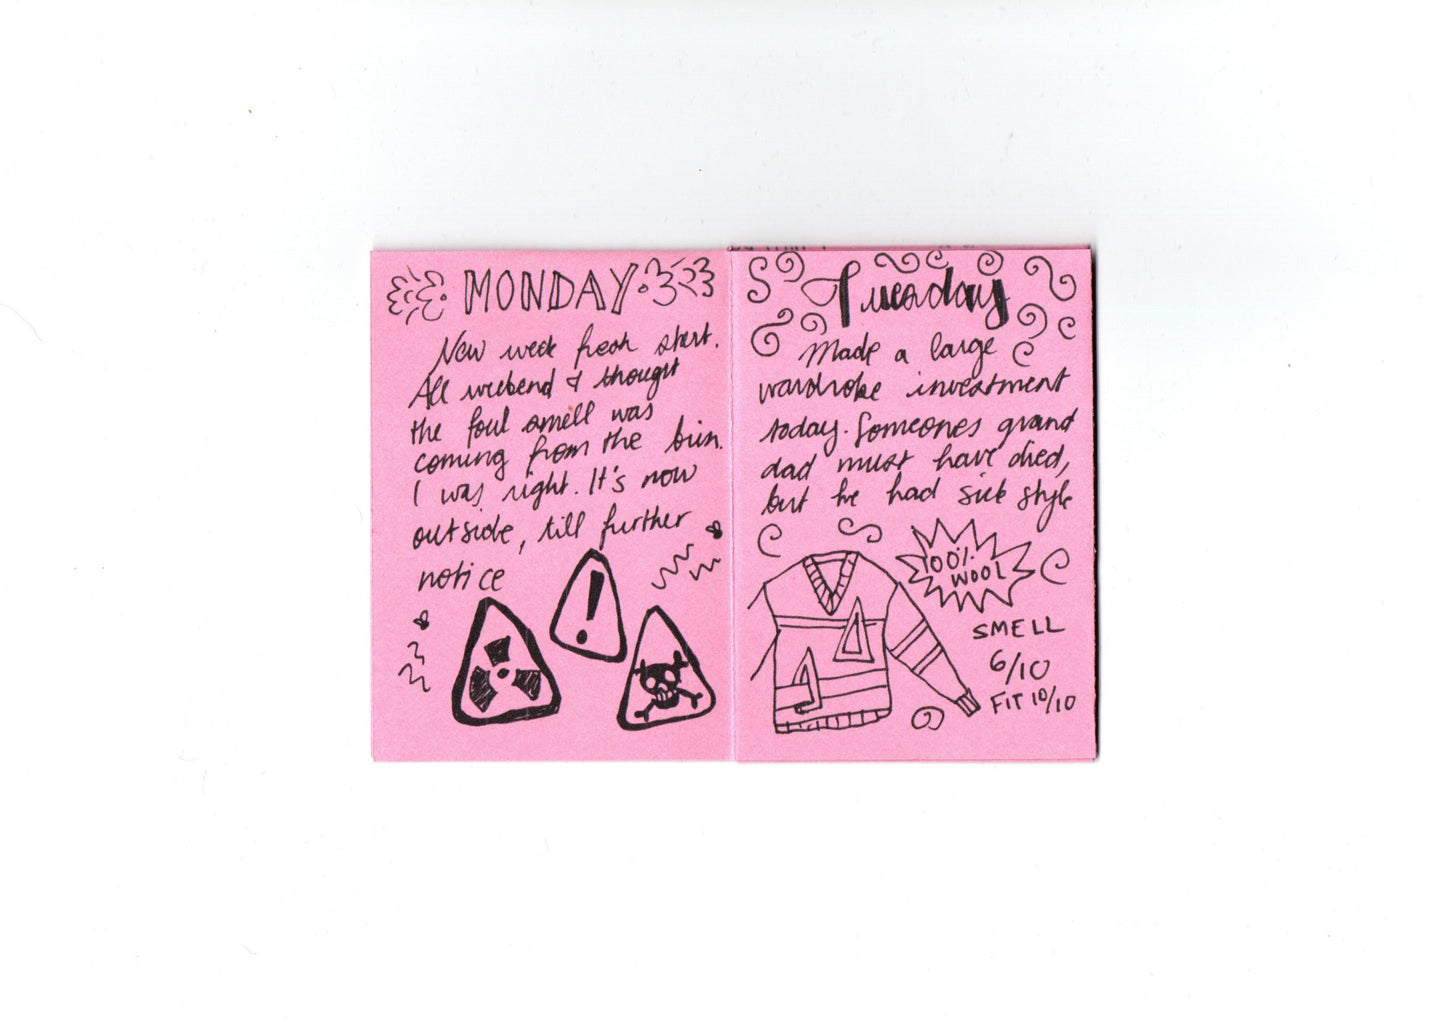 MONDAY
New week fresh start.
All weekend I thought
the foul smell was
coming from the bin.
I was right. It's now
outside, till further
notice
!
Tuesday
Made a large
wardrobe investment
today. Someones grand
dad must have died,
but he had sick style
100%
WOOL
SMELL
6/10
FIT 10/10